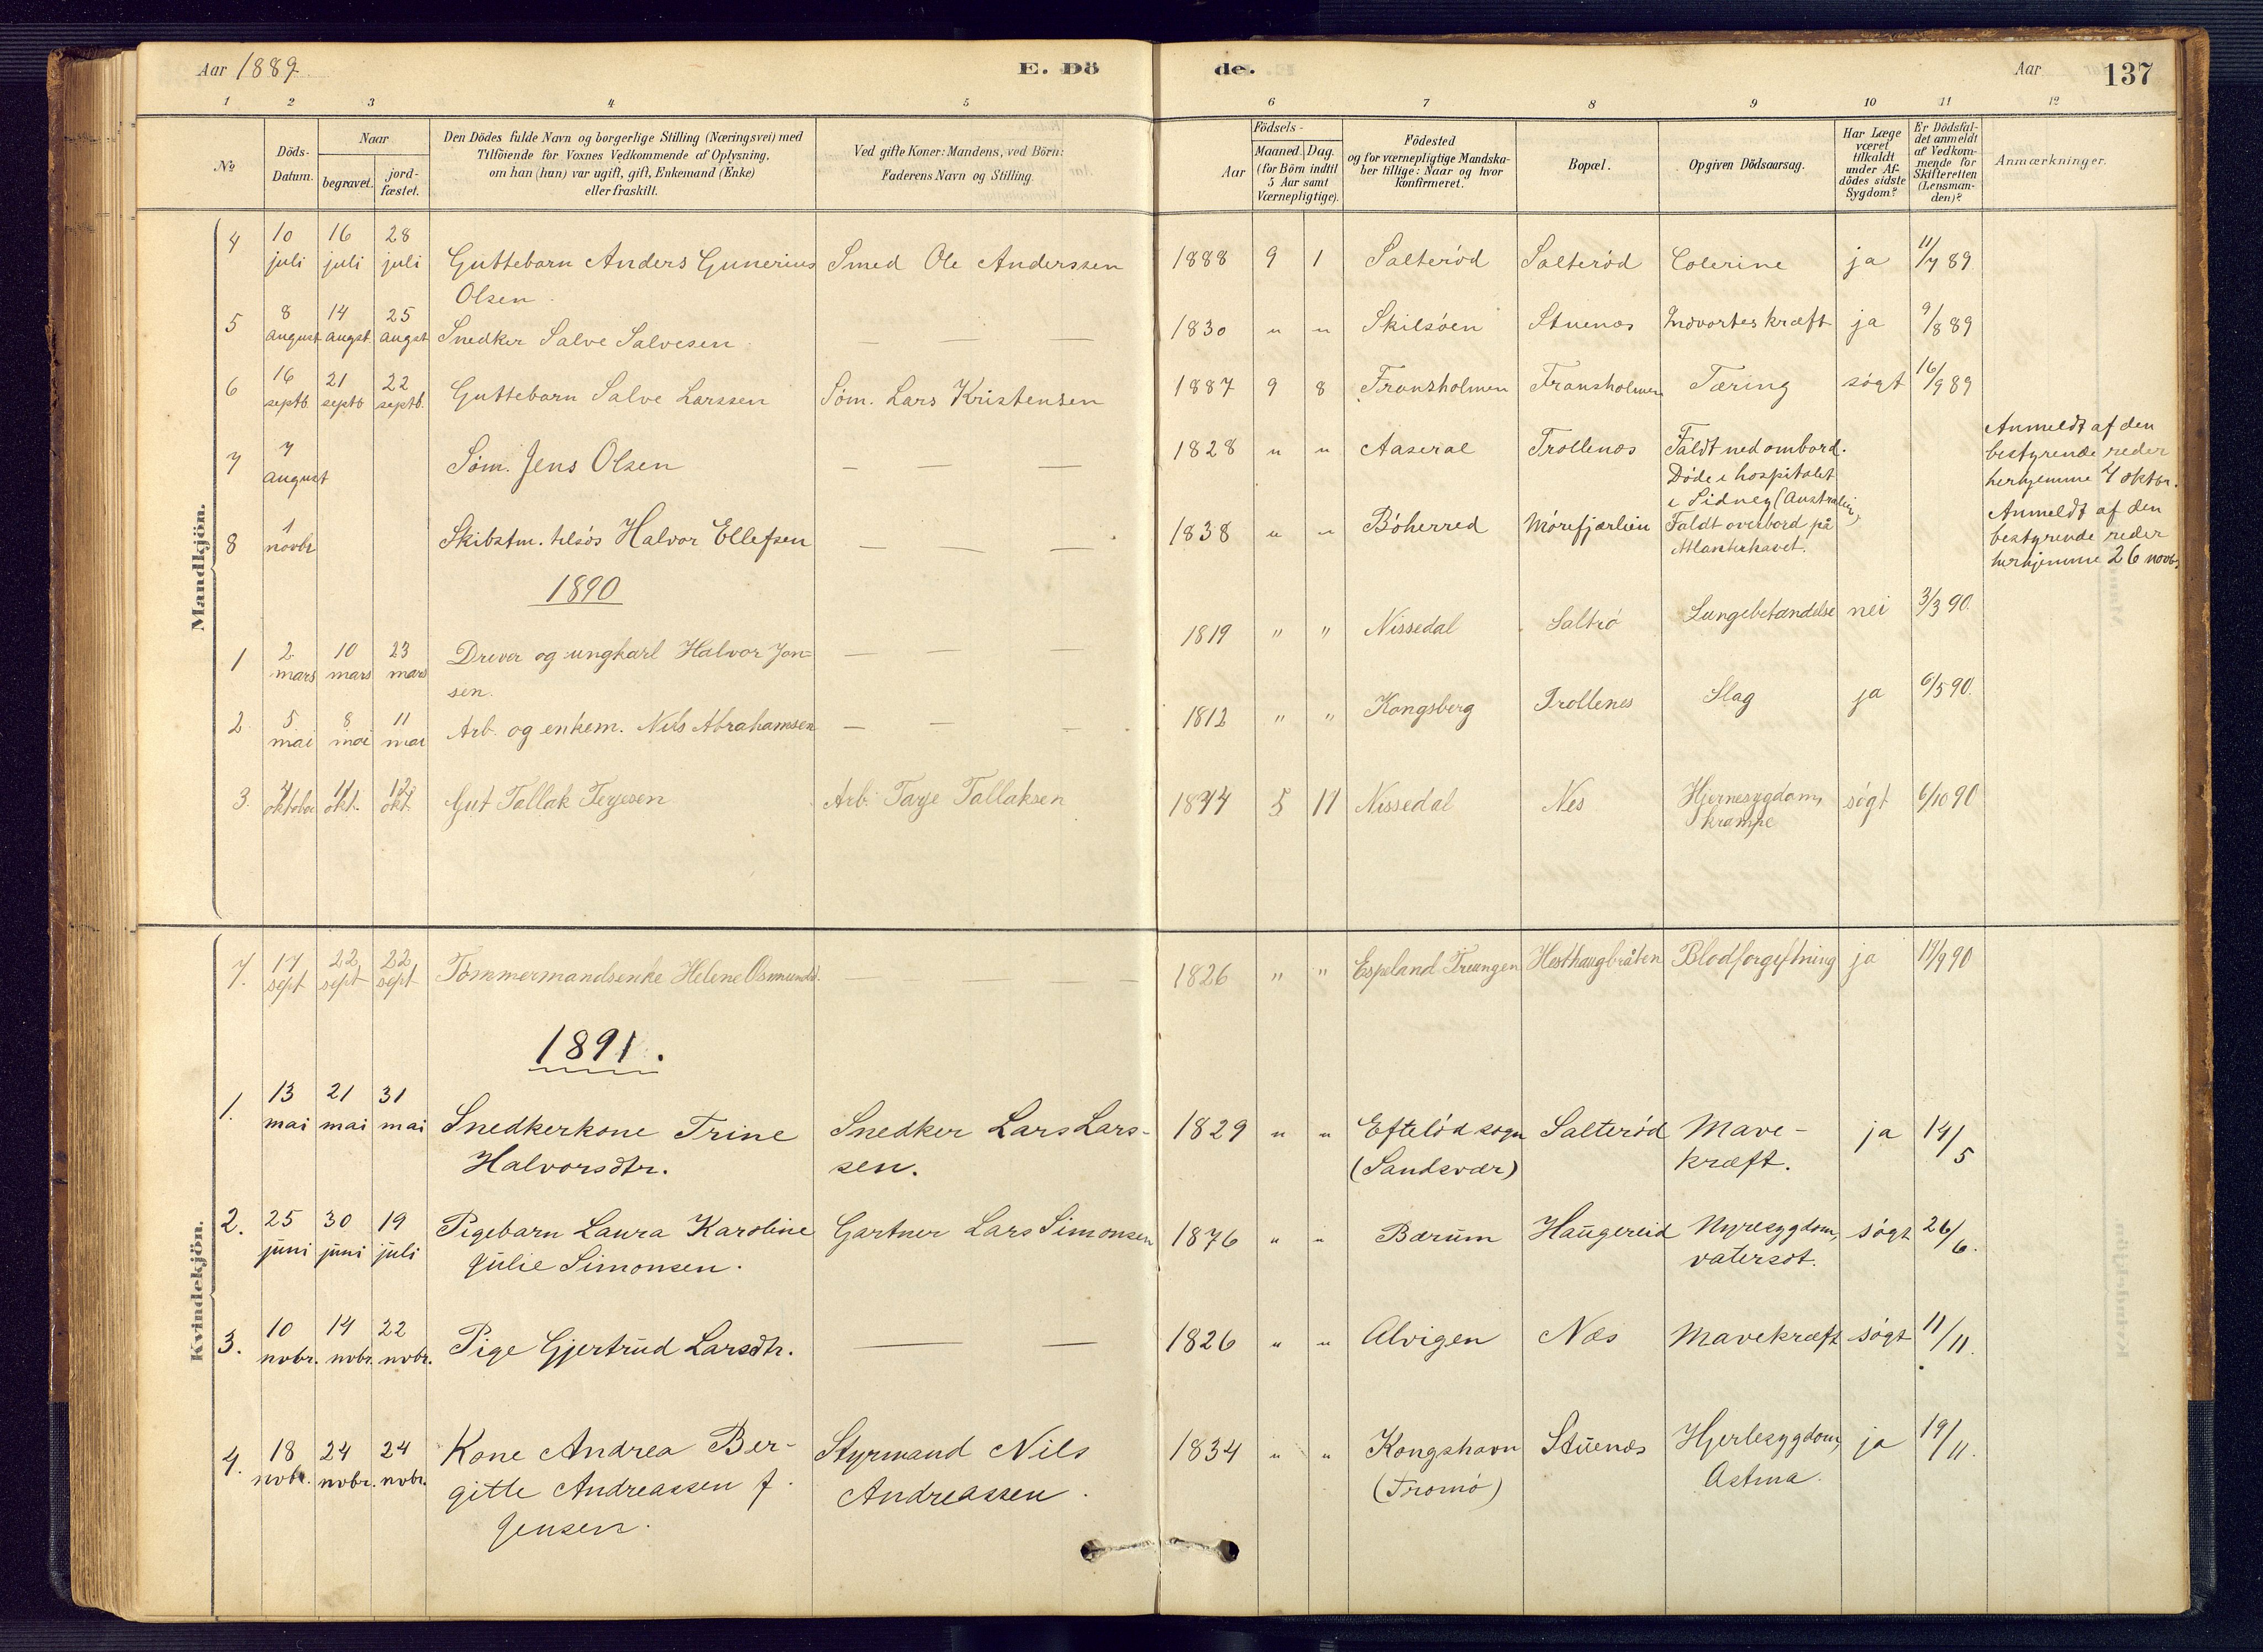 Aar 1889 E. Dö
de. Aar 137
1 2 3 4 5 6 7 8 9 10 11 12
No
Döds-
Datum.
Naar
begravet.
jord-
fæstet.
Den Dödes fulde Navn og borgerlige Stilling (Næringsvei) med
Tilföiende for Voxnes Vedkommende af Oplysning,
om han (hun) var ugift, gift, Enkemand (Enke)
eller fraskilt.
Ved gifte Koner: Mandens, ved Börn:
Faderens Navn og Stilling.
Födsels-
Aar
Maaned. Dag.
(for Börn indtil
5 Aar samt
Værnepligtige).
Födested
og for værnepligtige Mandska-
ber tillige: Naar og hvor
konfirmeret.
Bopæl.
Opgiven Dödsaarsag.
Har Læge
været
tilkaldt
under Af-
dödes sidste
Sygdom?
Er Dödsfal-
det anmeldt
af Vedkom-
mende for
Skifteretten
(Lensman-
den)?
Anmærkninger.
Mandkjön.
4 10 juli 16 juli 28 juli Guttebarn Anders Gunerius Smed Ole Anderssen 1888 9 1 Salterød Salterød Colerine ja 11/7 89
Olsen
5 8 august 14 augst 25 augst Snedker Salve Salvesen — — — 1830 " " Skilsøen Stuenæs Indvortes kræft ja 9/8 89
6 16 septb. 21 septb 22 septb. Guttebarn Salve Larssen Søm. Lars Kristensen 1887 9 8 Fransholmen Fransholmen Tæring søgt 16/9 89
7 7 august Søm. Jens Olsen — — — 1828 " " Aaseral Trollenæs Faldt ned ombord.
Døde i hospitalet
i Sidney (Australien)
Anmeldt af den
bestyrende reder
herhjemme 7 oktbr.
8 1 novbr Skibstm. tilsøs Halvor Ellefsen — — — 1838 " " Bøherred Mørefjærlien Faldt overbord på
Atlanterhavet.
Anmeldt af den
bestyrende reder
herhjemme 26 novb.
1890
1 2 mars 10 mars 23 mars Drever og ungkarl Halvor Jon= — — — 1819 " " Nissedal Saltrø Lungebetændelse nei 3/3 90.
sen.
2 5 mai 8 mai 11 mai Arb. og enkem. Nils Abrahamsen — — — 1812 " " Kongsberg Trollenes Slag ja 6/5 90.
3. 4 oktober 11 okt. 12 okt. Gut Tallak Terjesen Arb. Tarje Tallaksen 1874 5 11 Nissedal Nes Hjernesygdom, søgt 6/10 90
krampe
Kvindekjön.
7. 17 sept 22 sept 22 sept Tømmermandsenke Helene Osmundsd. — — — — — 1826 " " Espeland Treungen Hesthaugbråten Blodforgiftning ja 19/9 90
1891.
1. 13 mai 21 mai 31 mai Snedkerkone Trine Snedker Lars Lars- 1829 " " Eftelød sogn Salterød Mave- ja 14/5
Halvorsdtr. sen. (Sandsvær) kræft.
2. 25 juni 30 juni 19 juli Pigebarn Laura Karoline Gartner Lars Simonsen 1876 " " Bærum Haugereid Nyresygdom, søgt 26/6.
Julie Simonsen. vatersot.
3. 10 nvbr. 14 nvbr. 22 nvbr. Pige Gjertrud Larsdtr. — — 1826 " " Alvigen Næs Mavekræft søgt 11/11.
4. 18 nvbr. 24 nvbr. 24 nvbr. Kone Andrea Ber- Styrmand Nils 1834 " " Kongshavn Stuenæs Hjertesygdom, ja 19/11.
gitte Andreassen f. Andreassen. (Tromø) Astma.
Jensen.